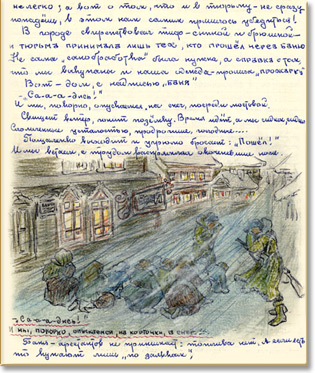 нелегко; а вот о том, что и в тюрьму – не сразу
попадёшь, в этом нам самим пришлось убедиться!
В городе свирепствовал тиф – сыпной и брюшной –
и тюрьма принимала лишь тех, кто прошёл через баню.
Не сама „санобработка" была нужна, а справка о том,
что мы выкупаны и наша одежда прошла „прожарку".
Вот – дом, с надписью „Баня"
– „Са-а-а-дись!"
И мы, покорно, опускаемся, на снег, посреди мостовой.
Свищет ветер, метёт позёмку. Время идёт, а мы сидим, сидим
Сломленные усталостью, продрогшие, голодные...
выходит и угрюмо бросает: „Пошёл!"
И мы встаём, с трудом распрямляя окоченевшие ноги
„Са-а-а-дись!"
И мы, покорно, опускаемся, на корточки, в снег...
Баня арестантов не принимает: топлива нет, а если есть
то купают лишь „по заявкам"